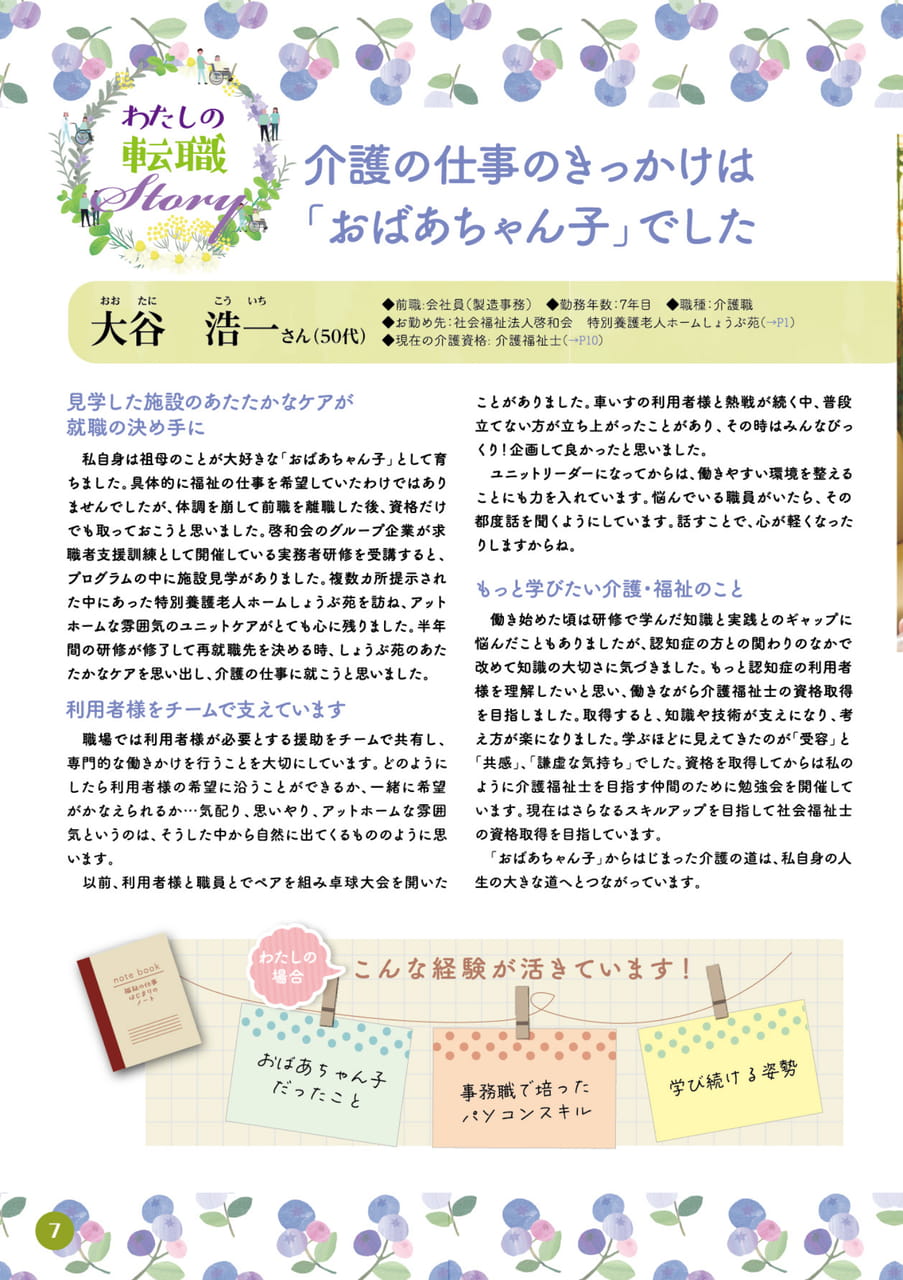 わたしの
転職
Story
介護の仕事のきっかけは
「おばあちゃん子」でした
おお たに こう いち
大谷 浩一さん(50代)
◆前職:会社員(製造事務) ◆勤務年数:7年目 ◆職種:介護職
◆お勤め先:社会福祉法人啓和会 特別養護老人ホームしょうぶ苑(→P1)
◆現在の介護資格: 介護福祉士(→P10)
見学した施設のあたたかなケアが
就職の決め手に
私自身は祖母のことが大好きな「おばあちゃん子」として育
ちました。具体的に福祉の仕事を希望していたわけではあり
ませんでしたが、体調を崩して前職を離職した後、資格だけ
でも取っておこうと思いました。啓和会のグループ企業が求
職者支援訓練として開催している実務者研修を受講すると、
プログラムの中に施設見学がありました。複数カ所提示され
た中にあった特別養護老人ホームしょうぶ苑を訪ね、アット
ホームな雰囲気のユニットケアがとても心に残りました。半年
間の研修が修了して再就職先を決める時、しょうぶ苑のあた
たかなケアを思い出し、介護の仕事に就こうと思いました。
利用者様をチームで支えています
職場では利用者様が必要とする援助をチームで共有し、
専門的な働きかけを行うことを大切にしています。どのように
したら利用者様の希望に沿うことができるか、一緒に希望
がかなえられるか…気配り、思いやり、アットホームな雰囲
気というのは、そうした中から自然に出てくるもののように思
います。
以前、利用者様と職員とでペアを組み卓球大会を開いた
ことがありました。車いすの利用者様と熱戦が続く中、普段
立てない方が立ち上がったことがあり、その時はみんなびっ
くり!企画して良かったと思いました。
ユニットリーダーになってからは、働きやすい環境を整える
ことにも力を入れています。悩んでいる職員がいたら、その
都度話を聞くようにしています。話すことで、心が軽くなった
りしますからね。
もっと学びたい介護・福祉のこと
働き始めた頃は研修で学んだ知識と実践とのギャップに
悩んだこともありましたが、認知症の方との関わりのなかで
改めて知識の大切さに気づきました。もっと認知症の利用者
様を理解したいと思い、働きながら介護福祉士の資格取得
を目指しました。取得すると、知識や技術が支えになり、考
え方が楽になりました。学ぶほどに見えてきたのが「受容」と
「共感」、「謙虚な気持ち」でした。資格を取得してからは私の
ように介護福祉士を目指す仲間のために勉強会を開催して
います。現在はさらなるスキルアップを目指して社会福祉士
の資格取得を目指しています。
「おばあちゃん子」からはじまった介護の道は、私自身の人
生の大きな道へとつながっています。
note book
福祉の仕事
はじまりの
ノート
わたしの
場合
こんな経験が活きています!
おばあちゃん子
だったこと
事務職で培った
パソコンスキル
学び続ける姿勢
7